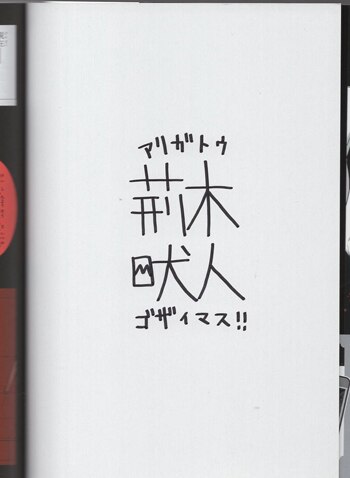 アリガトウ
荊木
吠人
ゴザイマス!!